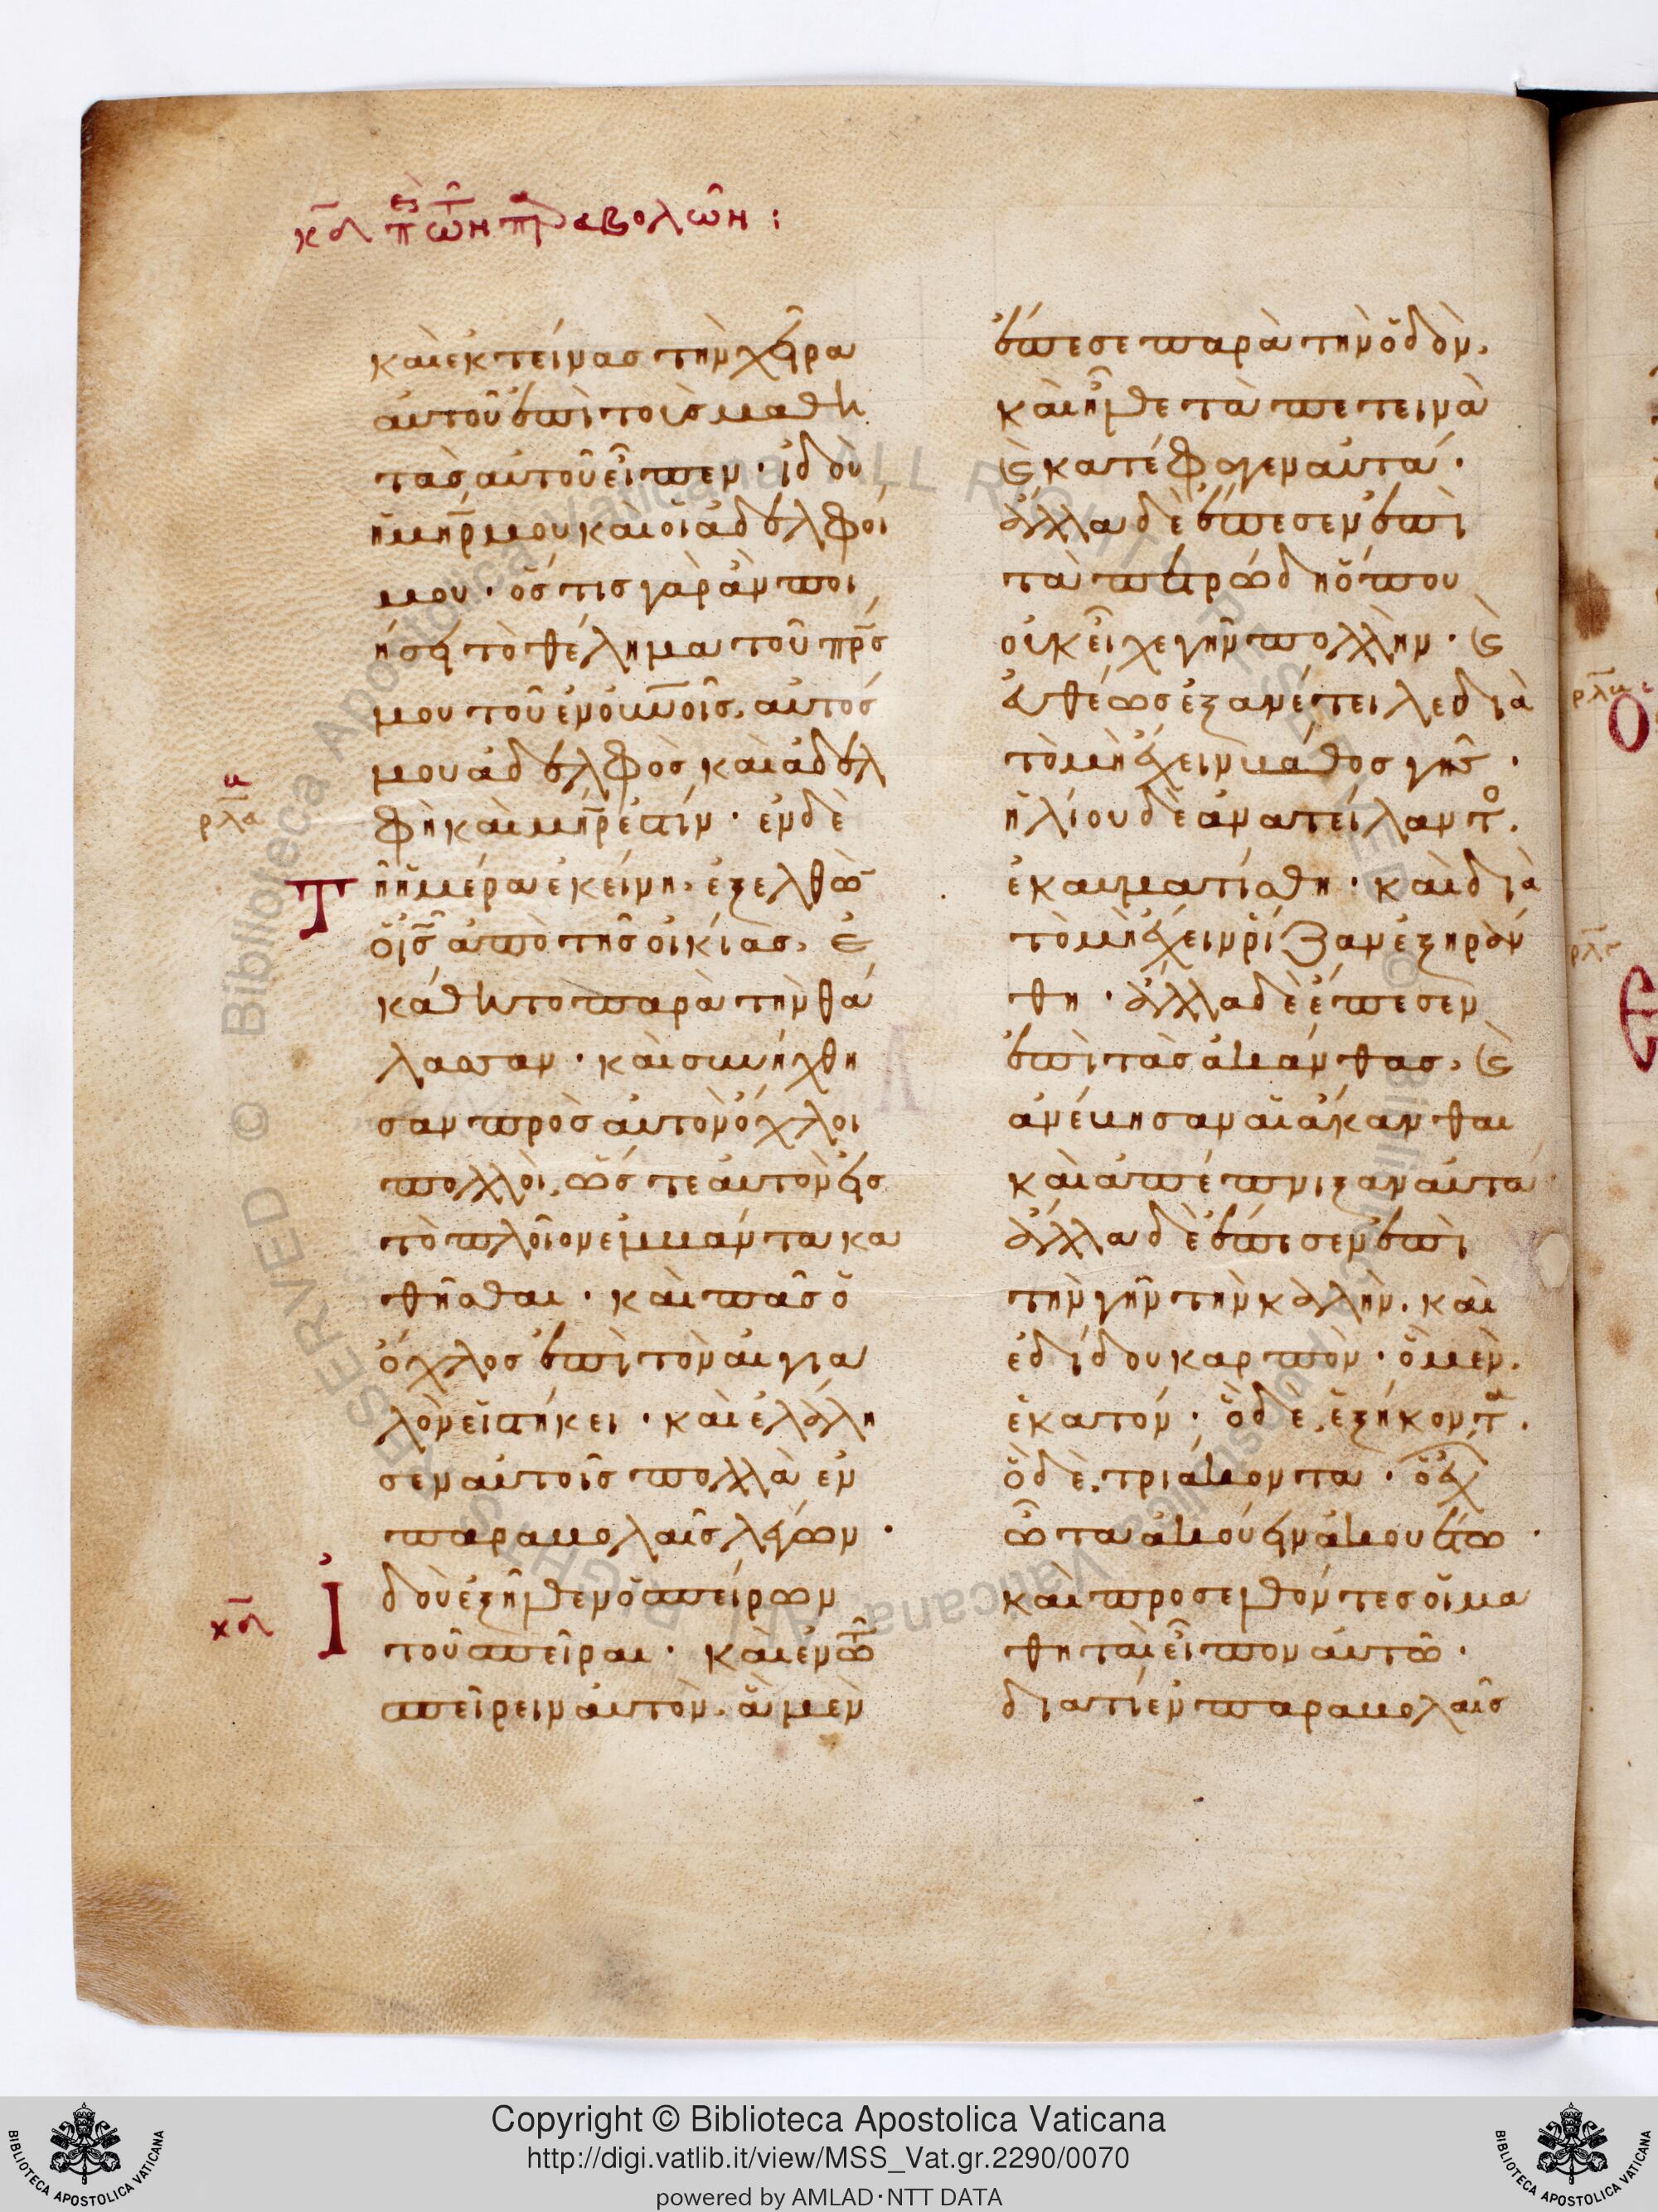 κδ περὶ τῶν παραβολῶν :
καὶ ἐκτείνας τὴν χεῖρα
αὐτοῦ ἐπὶ τοὺς μαθη
τὰς αὐτοῦ εἶπεν · ἰδοὺ
ἡ μηρ μου καὶ οἱ ἀδελφοί
μου · ὅστις γὰρ ἂν ποι
ήσει τὸ θέλημα τοῦ πρς
μου τοῦ ἐν οὐνοῖς, αὐτός
μου ἀδελφὸς καὶ ἀδελ
φὴ καὶ μηρ ἐστίν · ἐν δὲ
ρλα
Τῆ ἡμέρα ἐκείνη, ἐξελθὼ
ὁ ις ἀπὸ τῆς οἰκίας, ἐ
κάθητο παρὰ τὴν θά
λασσαν · καὶ συνήχθη
σαν πρὸς αὐτὸν ὄχλοι
πολλοὶ, ὥστε αὐτὸν εἰς
τὸ πλοῖον ἐμβάντα κα
θῆσθαι · καὶ πᾶς ὁ
ὄχλος ἐπὶ τὸν αἰγια
λὸν εἱστήκει · καὶ ἐλάλη
σεν αὐτοῖς πολλὰ ἐν
παραβολαῖς λέγων ·
κδ
Ἰδοὺ ἐξῆλθεν ὁ σπείρων
τοῦ σπεῖραι · καὶ ἐν τῶ
σπείρειν αὐτὸν, ἃ μὲν
ἔπεσε παρὰ τὴν ὁδὸν,
καὶ ἦλθε τὰ πετεινὰ
ϗ κατέφαγεν αὐτά ·
ἄλλα δὲ ἔπεσεν ἐπὶ
τὰ πετρώδη ὅπου
οὐκ εἶχε γῆν πολλὴν · ϗ
εὐθέως ἐξανέτειλε διὰ
τὸ μὴ ἔχειν βάθος γῆς ·
ἡλίου δὲ ἀνατείλαντο,
ἐκαυματίσθη · καὶ διὰ
τὸ μὴ ἔχειν ῥίζαν ἐξηράν
θη · ἄλλα δὲ ἔπεσεν
ἐπὶ τὰς ἀκάνθας, ϗ
ἀνέβησαν αἱ ἄκανθαι
καὶ ἀπέπνιξαν αὐτά
ἄλλα δὲ ἔπεσεν ἐπὶ
τὴν γῆν τὴν καλὴν, καὶ
ἐδίδου καρπὸν · ὃ μὲν,
ἑκατόν · ὃ δὲ, ἑξήκοντα.
ὃ δὲ, τριάκοντα · ὁ ἔχ
ὦτα ἀκούειν ἀκουέτω ·
καὶ προσελθόντες οἱ μα
θηταὶ εἶπον αὐτῶ ·
διατί ἐν παραβολαῖς
Copyright © Biblioteca Apostolica Vaticana
http://digi.vatlib.it/view/MSS_Vat.gr.2290/0070
powered by AMLAD·NTT DATA
BIBLIOTECA APOSTOLICA VATICANA
BIBLIOTECA APOSTOLICA VATICANA